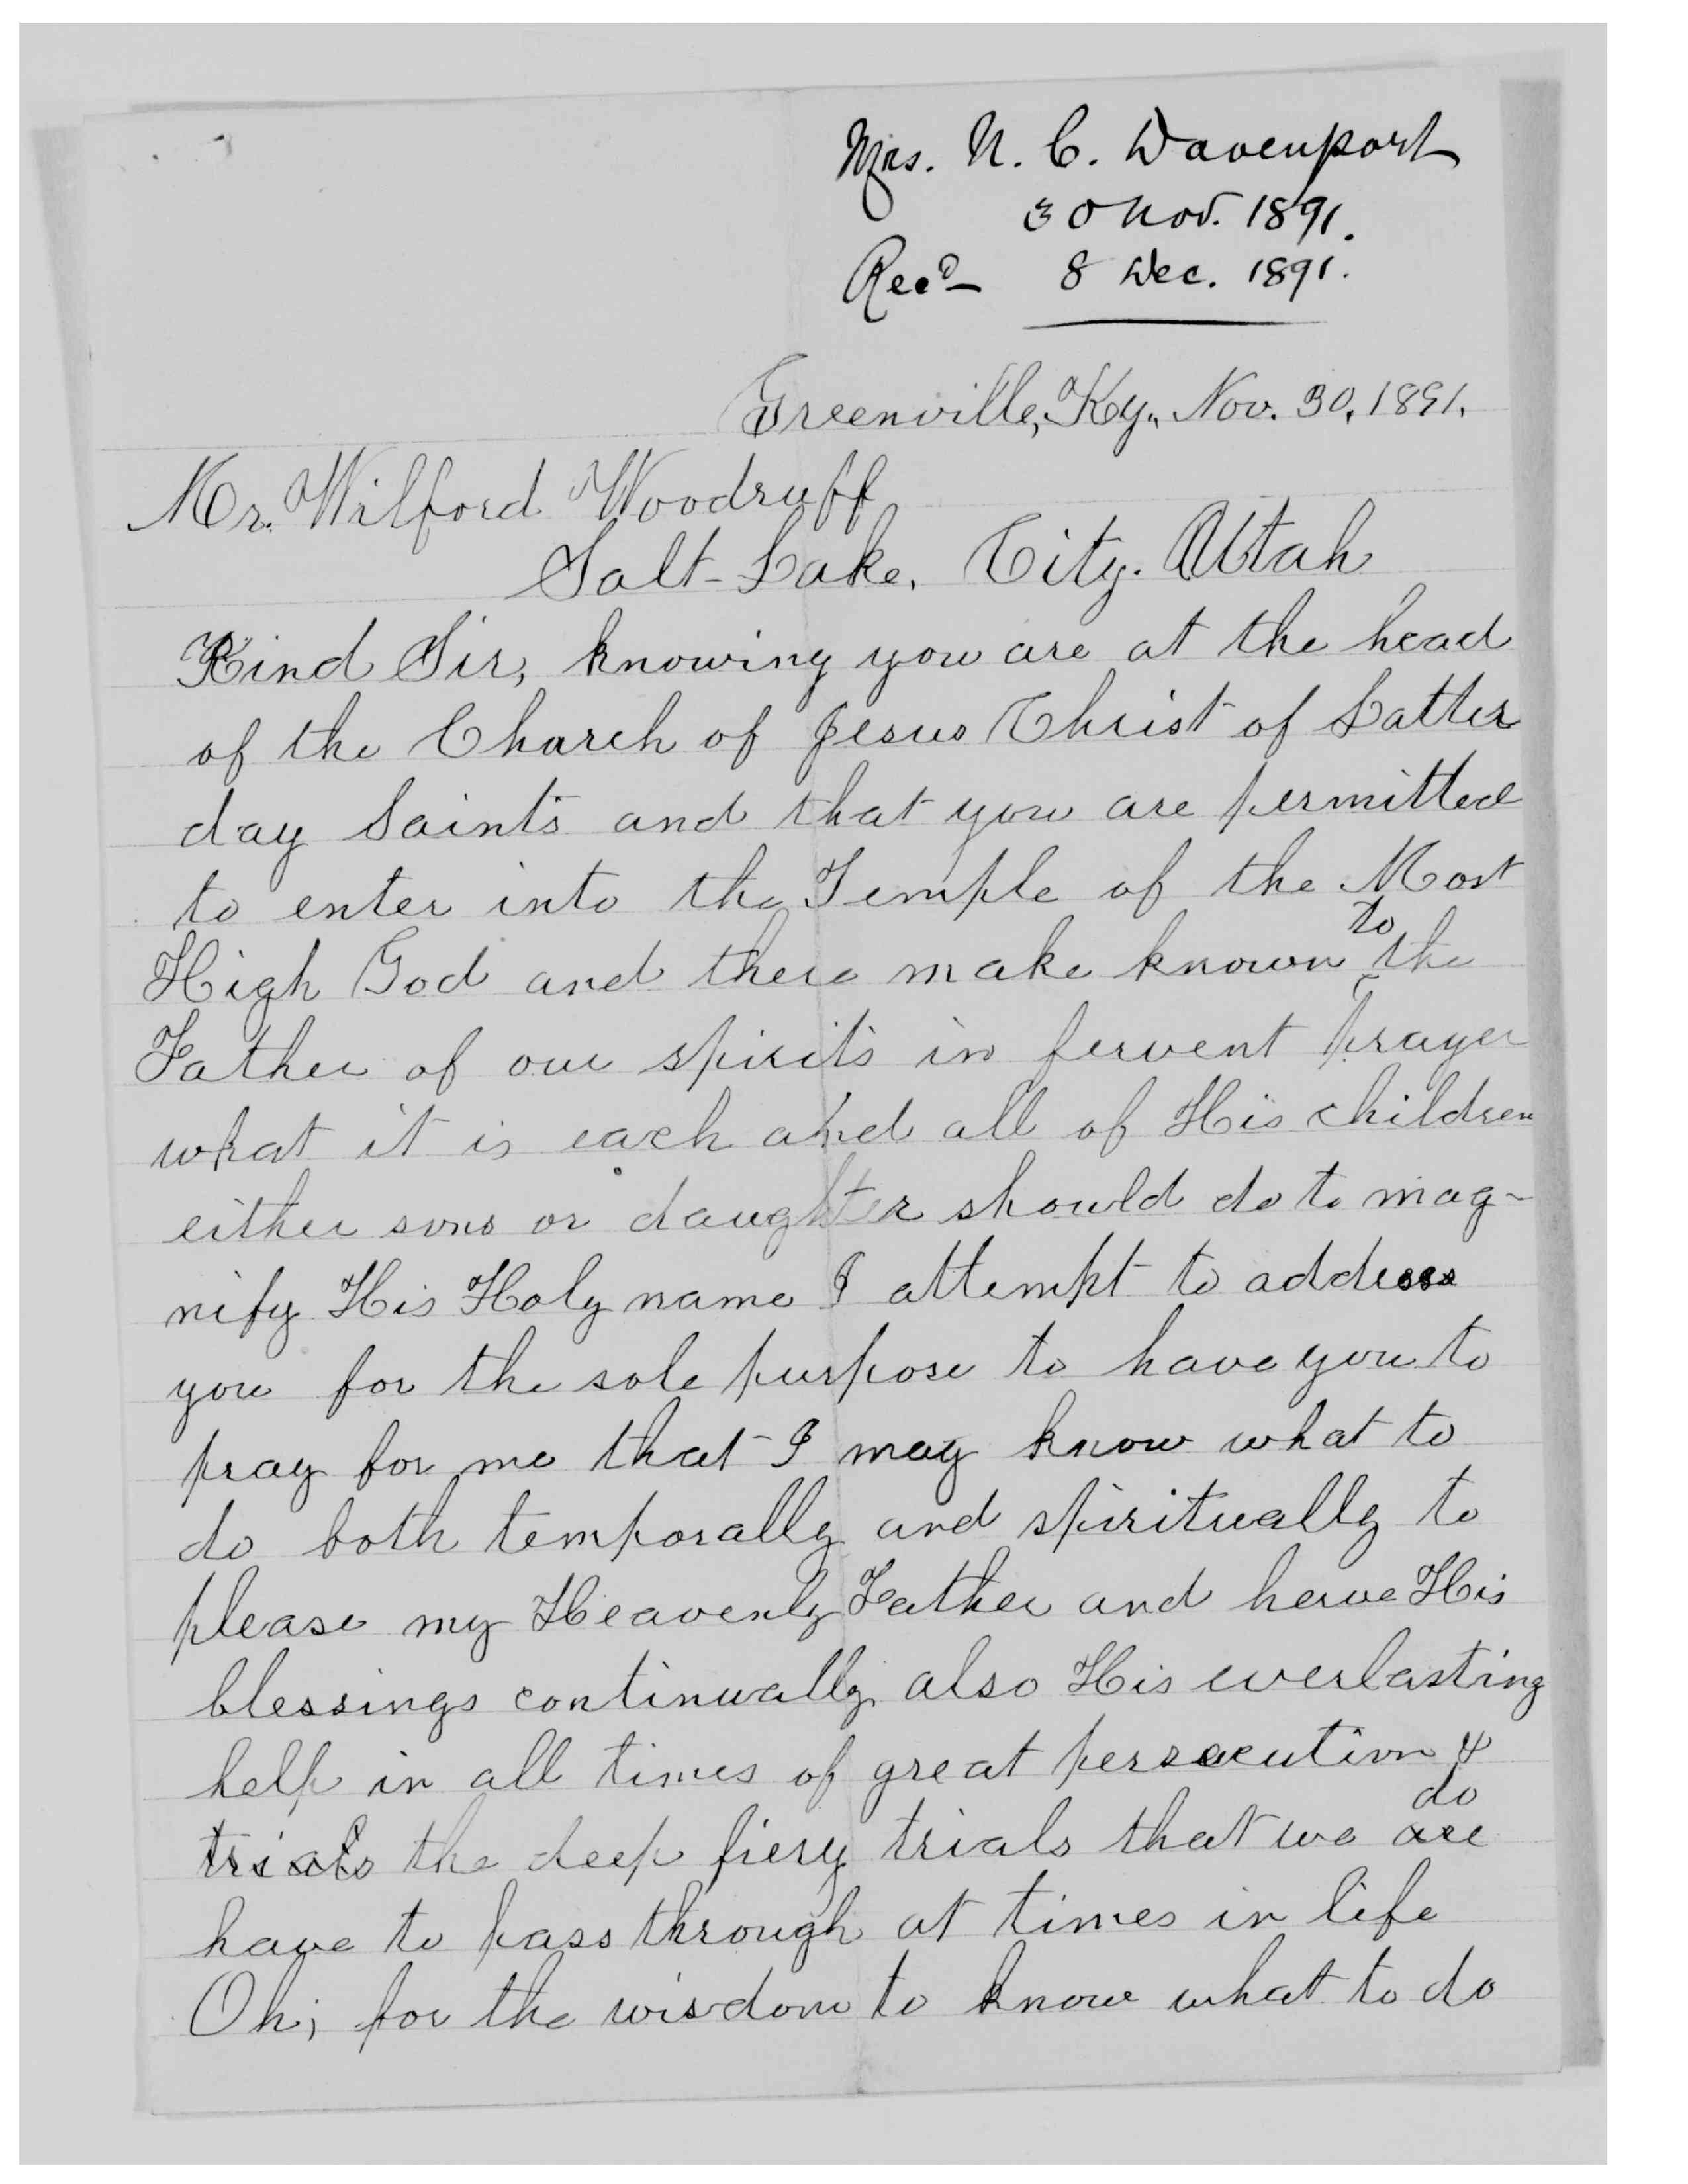 Mrs. N. C. Davenport
30 Nov. 1891.
Recd 8 Dec. 1891.
Greenville, Ky., Nov. 30, 1891.
Mr. Wilford Woodruff
Salt-Lake, City. Utah
Kind Sir, knowing you are at the head
of the Church of Jesus Christ of Latter
day Saints and that you are permitted
to enter into the Temple of the Most
High God and there make known to the
Father of our spirits in fervent prayer
what it is each and all of His children
either sons or daughter should do to mag-
nify His Holy name I attempt to address
you for the sole purpose to have you to
pray for me that I may know what to
do both temporally and spiritually to
please my Heavenly Father and have His
blessings continually also His everlasting
help in all times of great persecution &
trials the deep fiery trials that we are do
have to pass through at times in life
Oh; for the wisdom to know what to do